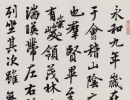 永和九年歲在
于會稽山陰
也群賢畢至
有崇山峻領茂林
湍暎帶左右
列坐其次雖無